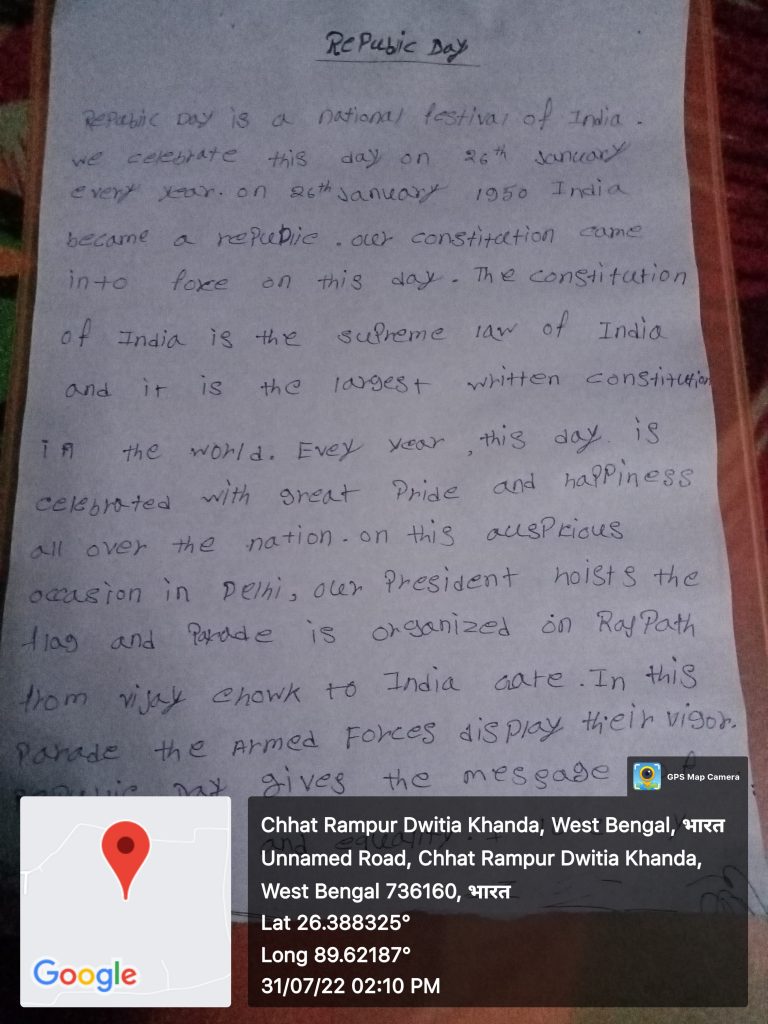 RePubic Day
RePubic Day is a national festival of India.
we celebrate this day on 26th January
every year. on 26th January 1950 India
became a rePublic. our constitution came
into force on this day. The constitution
of India is the suPreme law of India
and it is the largest written constitution
in the world. Evey year, this day is
celebrated with great Pride and haPPiness
all over the nation. on this ausPicious
occasion in Delhi, our President hoists the
flag and Parade is organized on RajPath
from vijay chowk to India Gate. In this
Parade the Armed Forces disPlay their vigor.
RePubic Day gives the message
and equality.
GPS Map Camera
Chhat Rampur Dwitia Khanda, West Bengal, भारत
Unnamed Road, Chhat Rampur Dwitia Khanda,
West Bengal 736160, भारत
Lat 26.388325°
Long 89.62187°
31/07/22 02:10 PM
Google